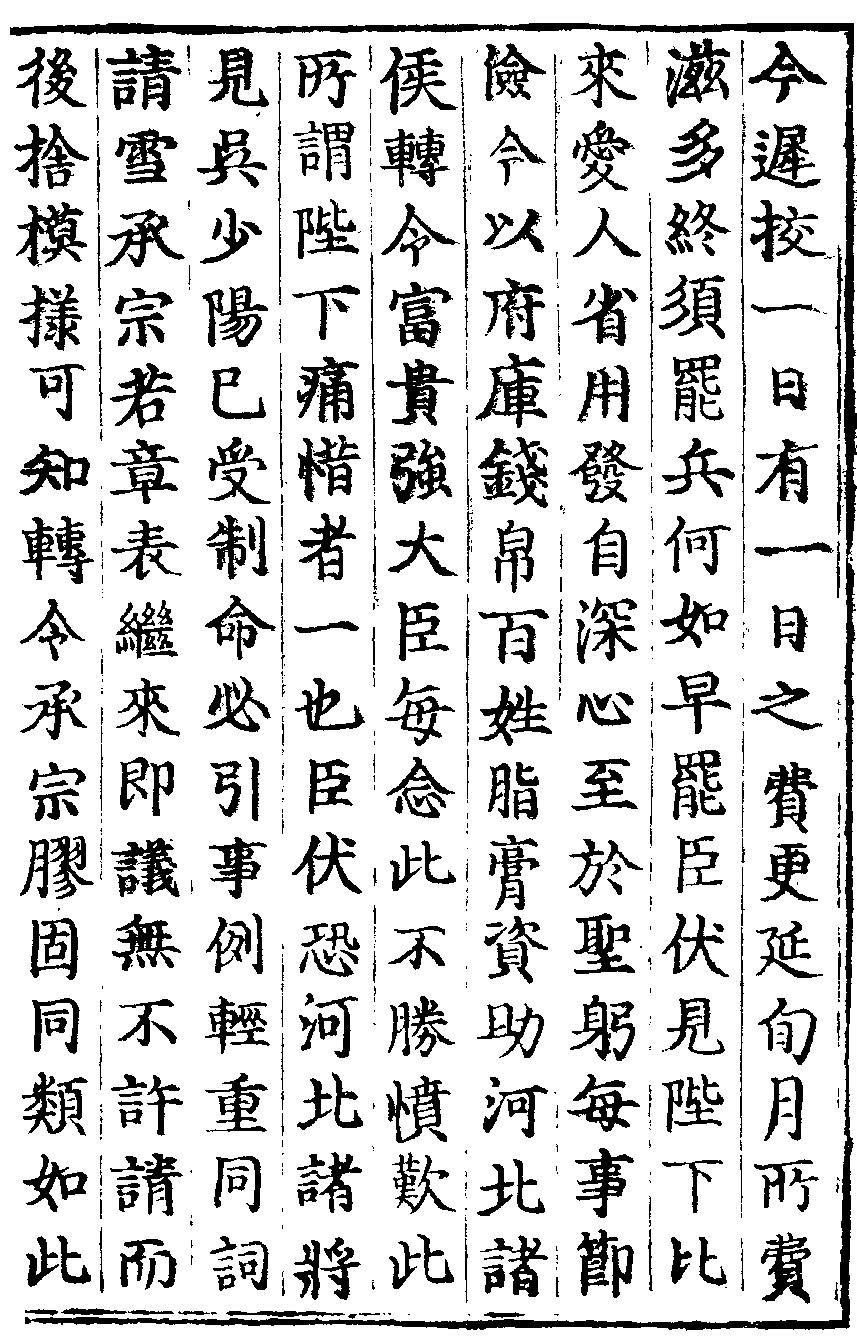 今遲挍一日有一日之費更延旬月所費
滋多終須罷兵何如早罷臣伏見陛下比
來愛人省用發自深心至於聖躬每事節
儉今以府庫錢帛百姓脂膏資助河北諸
侯轉令富貴強大臣每念此不勝憤歎此
所謂陛下痛惜者一也臣伏恐河北諸將
見吳少陽已受制命必引事例輕重同詞
請雪承宗若章表繼來即議無不許請而
後捨模樣可知轉令承宗膠固同類如此